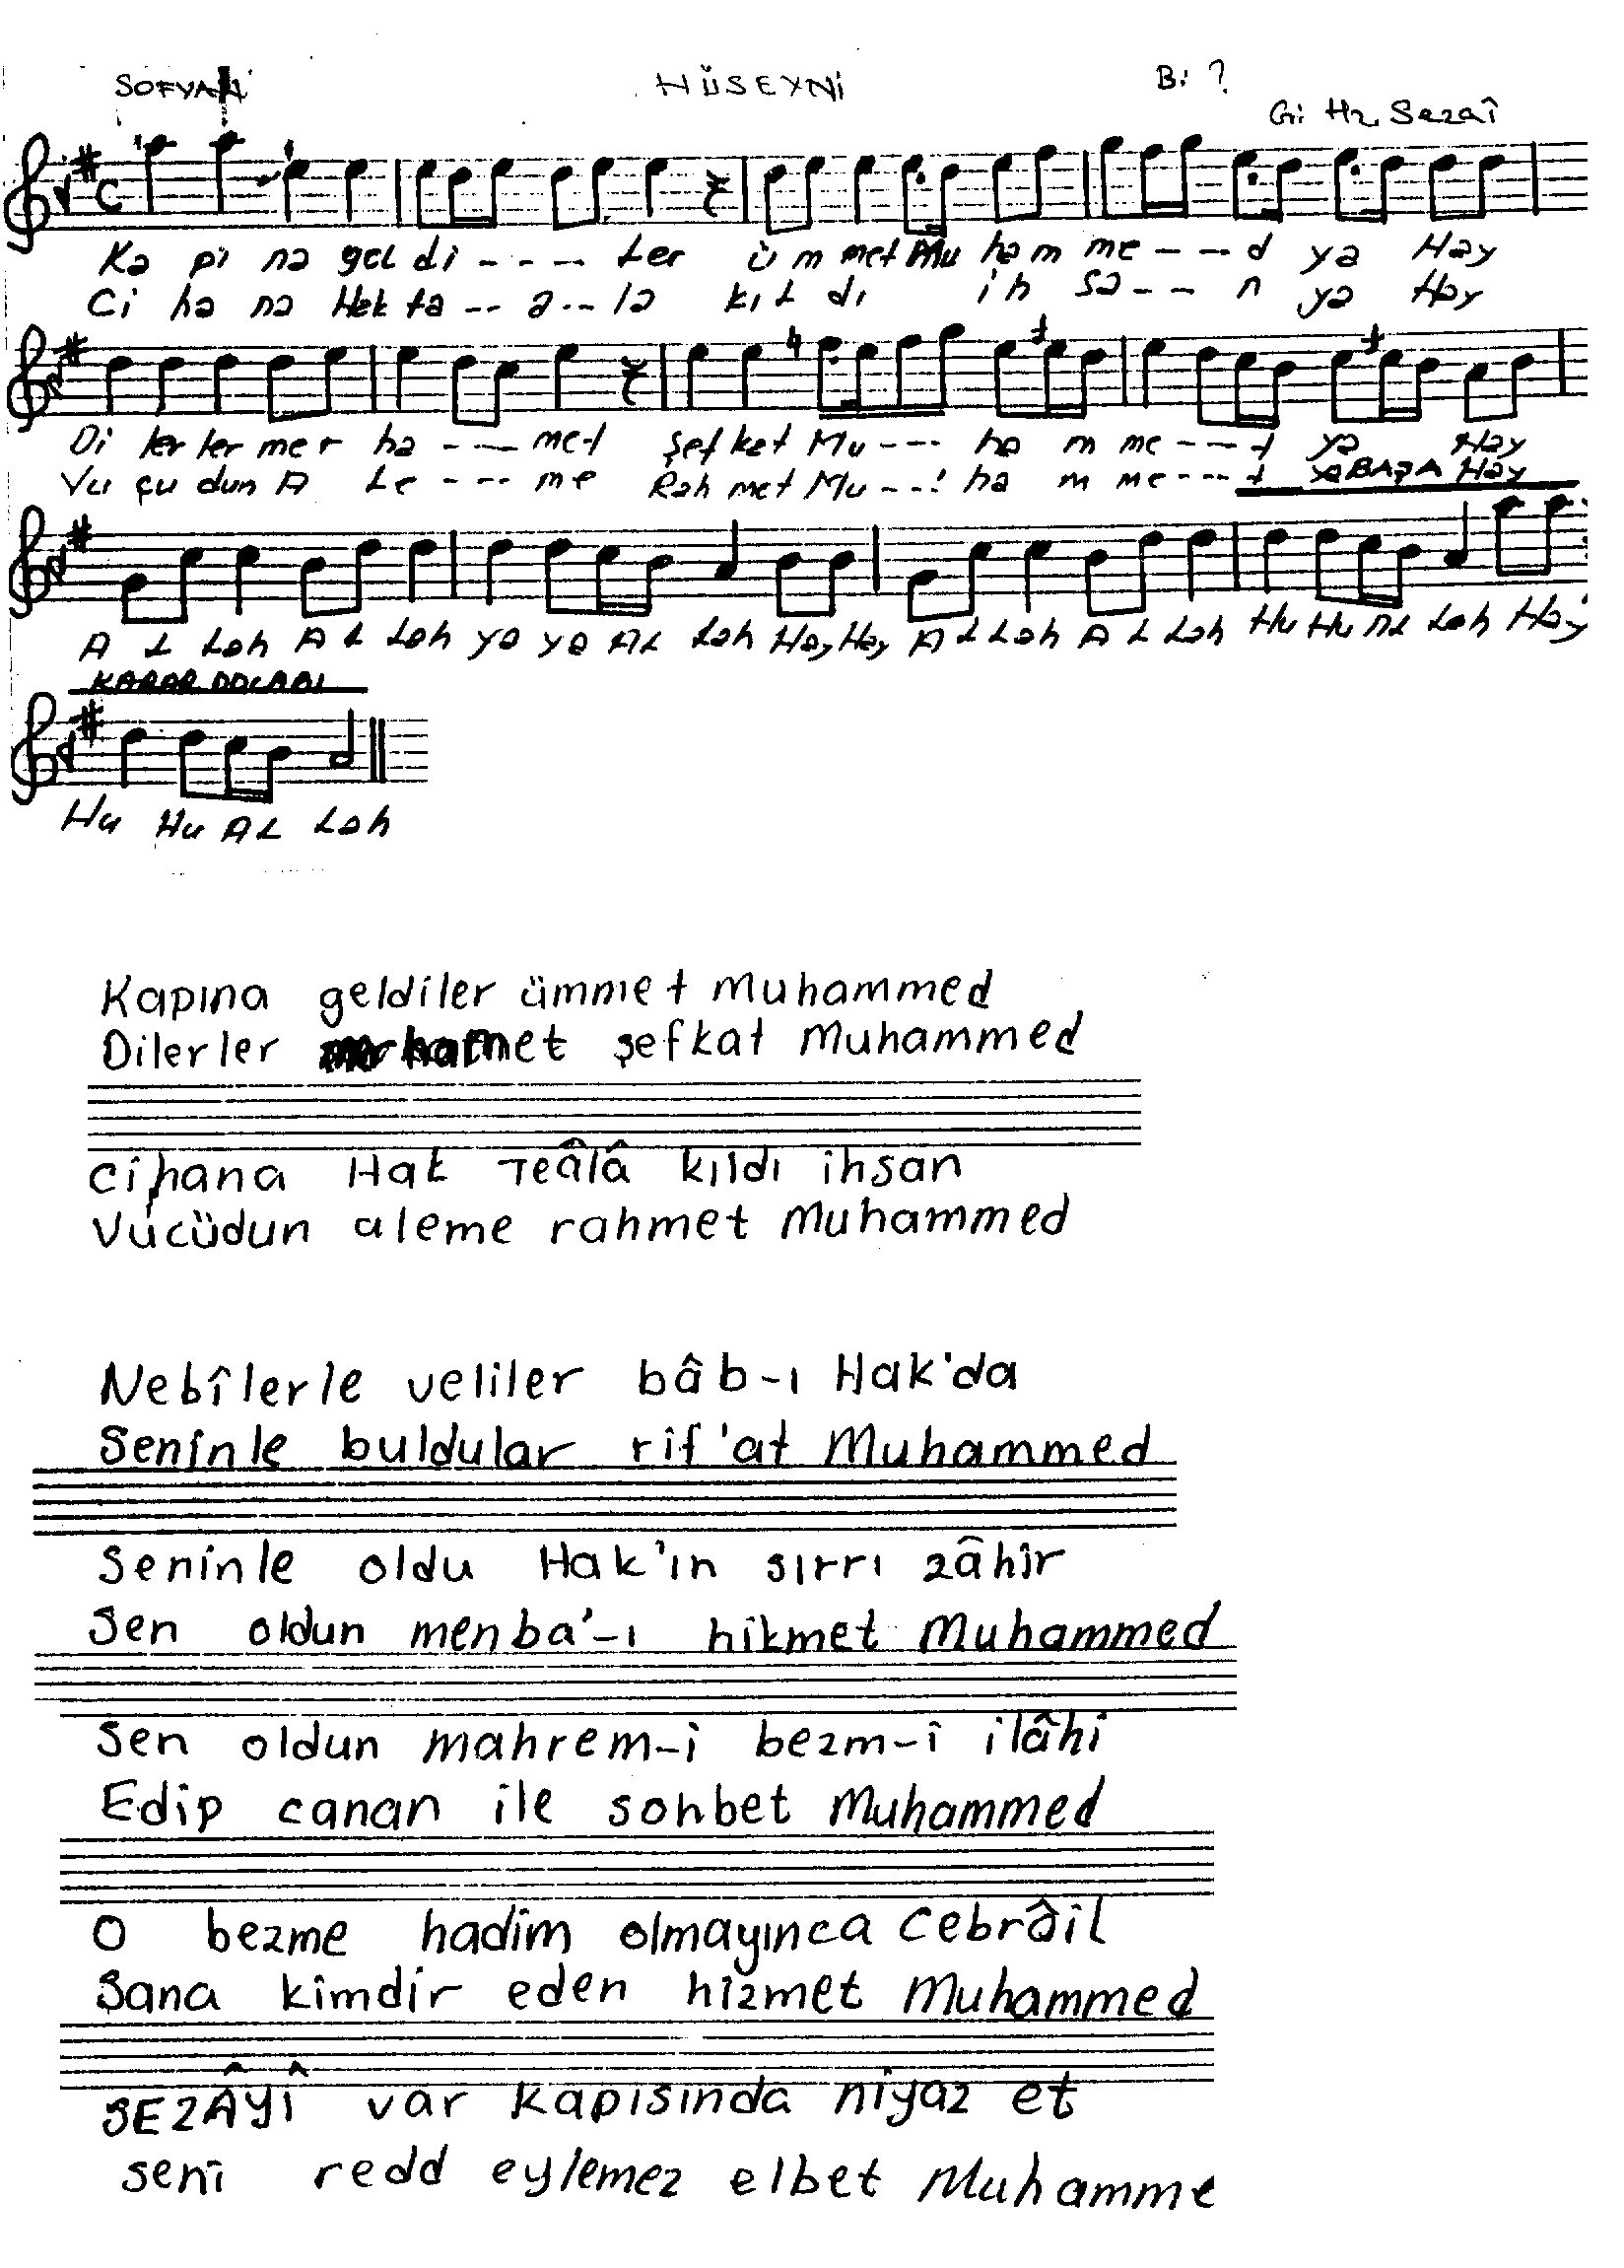 SOFYAN HÜSEYNİ Bi ?
Gi Hz. Sezaî
Ka pi na gel di - - - - ler ü m met Mu ham me - - - d ya Hay
Ci ha na Hak ta - - a - - la kı l dı ih sa - - - n ya Hay
Di ler ler mer ha - - - - met şef ket Mu - - - ha m me - - - t ya Hay
Vu çu dun A Le - - - - me Rah met Mu - - - ha m me - - - - t ya BAŞA Hay
A L Lah A L Lah ya ya AL Lah Hay Hay A L Lah A L Lah Hu Hu AL Lah Hay
KARAR DOLABI
Hu Hu AL Lah
Kapına geldiler ümmet Muhammed
Dilerler merhamet şefkat Muhammed
Cihana Hak Teâlâ kıldı ihsan
Vücüdun aleme rahmet Muhammed
Nebîlerle veliler bâb-ı Hak'da
Seninle buldular rif'at Muhammed
Seninle oldu Hak'ın sırrı zâhîr
Sen oldun menba'-ı hikmet Muhammed
Sen oldun mahrem-i bezm-î ilâhi
Edip canan ile sohbet Muhammed
O bezme hadîm olmayınca Cebrâîl
Sana kîmdir eden hîzmet Muhammed
SEZÂYÎ var kapısında niyaz et
senî redd eylemez elbet Muhamme